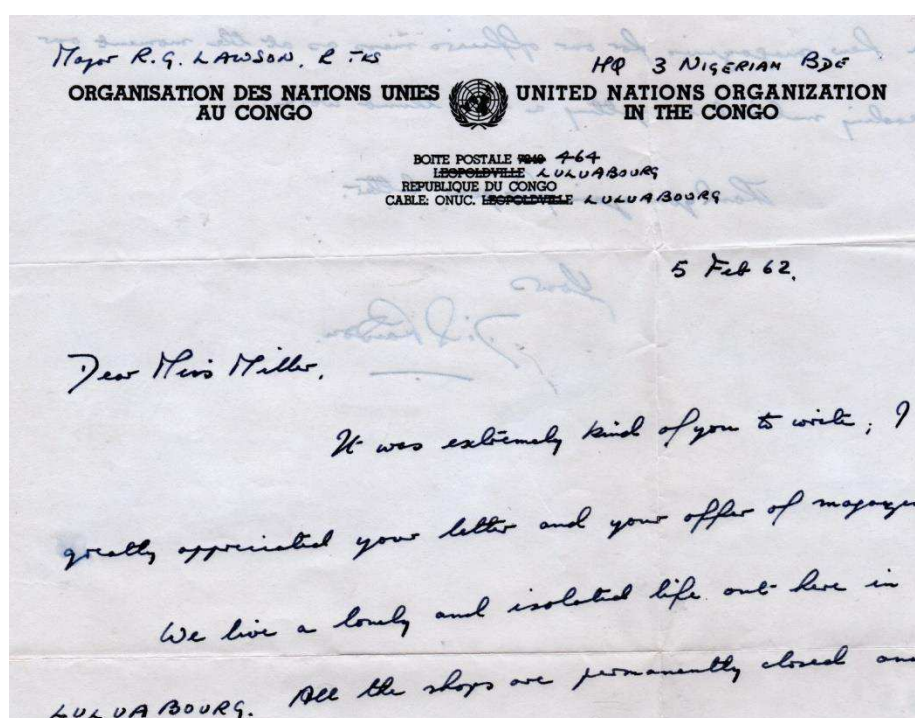 Major R.G. LAWSON, R TKS
HQ 3 NIGERIAN BDE
ORGANISATION DES NATIONS UNIES
AU CONGO
UNITED NATIONS ORGANIZATION
IN THE CONGO
BOITE POSTALE 464
LEOPOLDVILLE LULUABOURG
REPUBLIQUE DU CONGO
CABLE: ONUC. LEOPOLDVILLE LULUABOURG
5 Feb 62.
Dear Miss Miller,
It was extremely kind of you to write; I
greatly appreciated your letter and your offer of magazine
We live a lonely and isolated life out here in
LULUABOURG. All the shops are permanently closed and